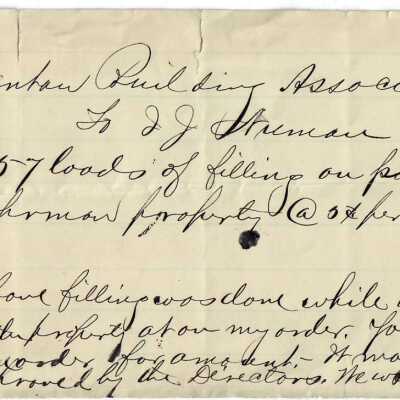 Building Assoc
To J J
57 loads of filling on
property @ 5¢ per
ove filling was done while
the property at on my order. Yo
order for amount. — It was
proved by the Directors. We wo